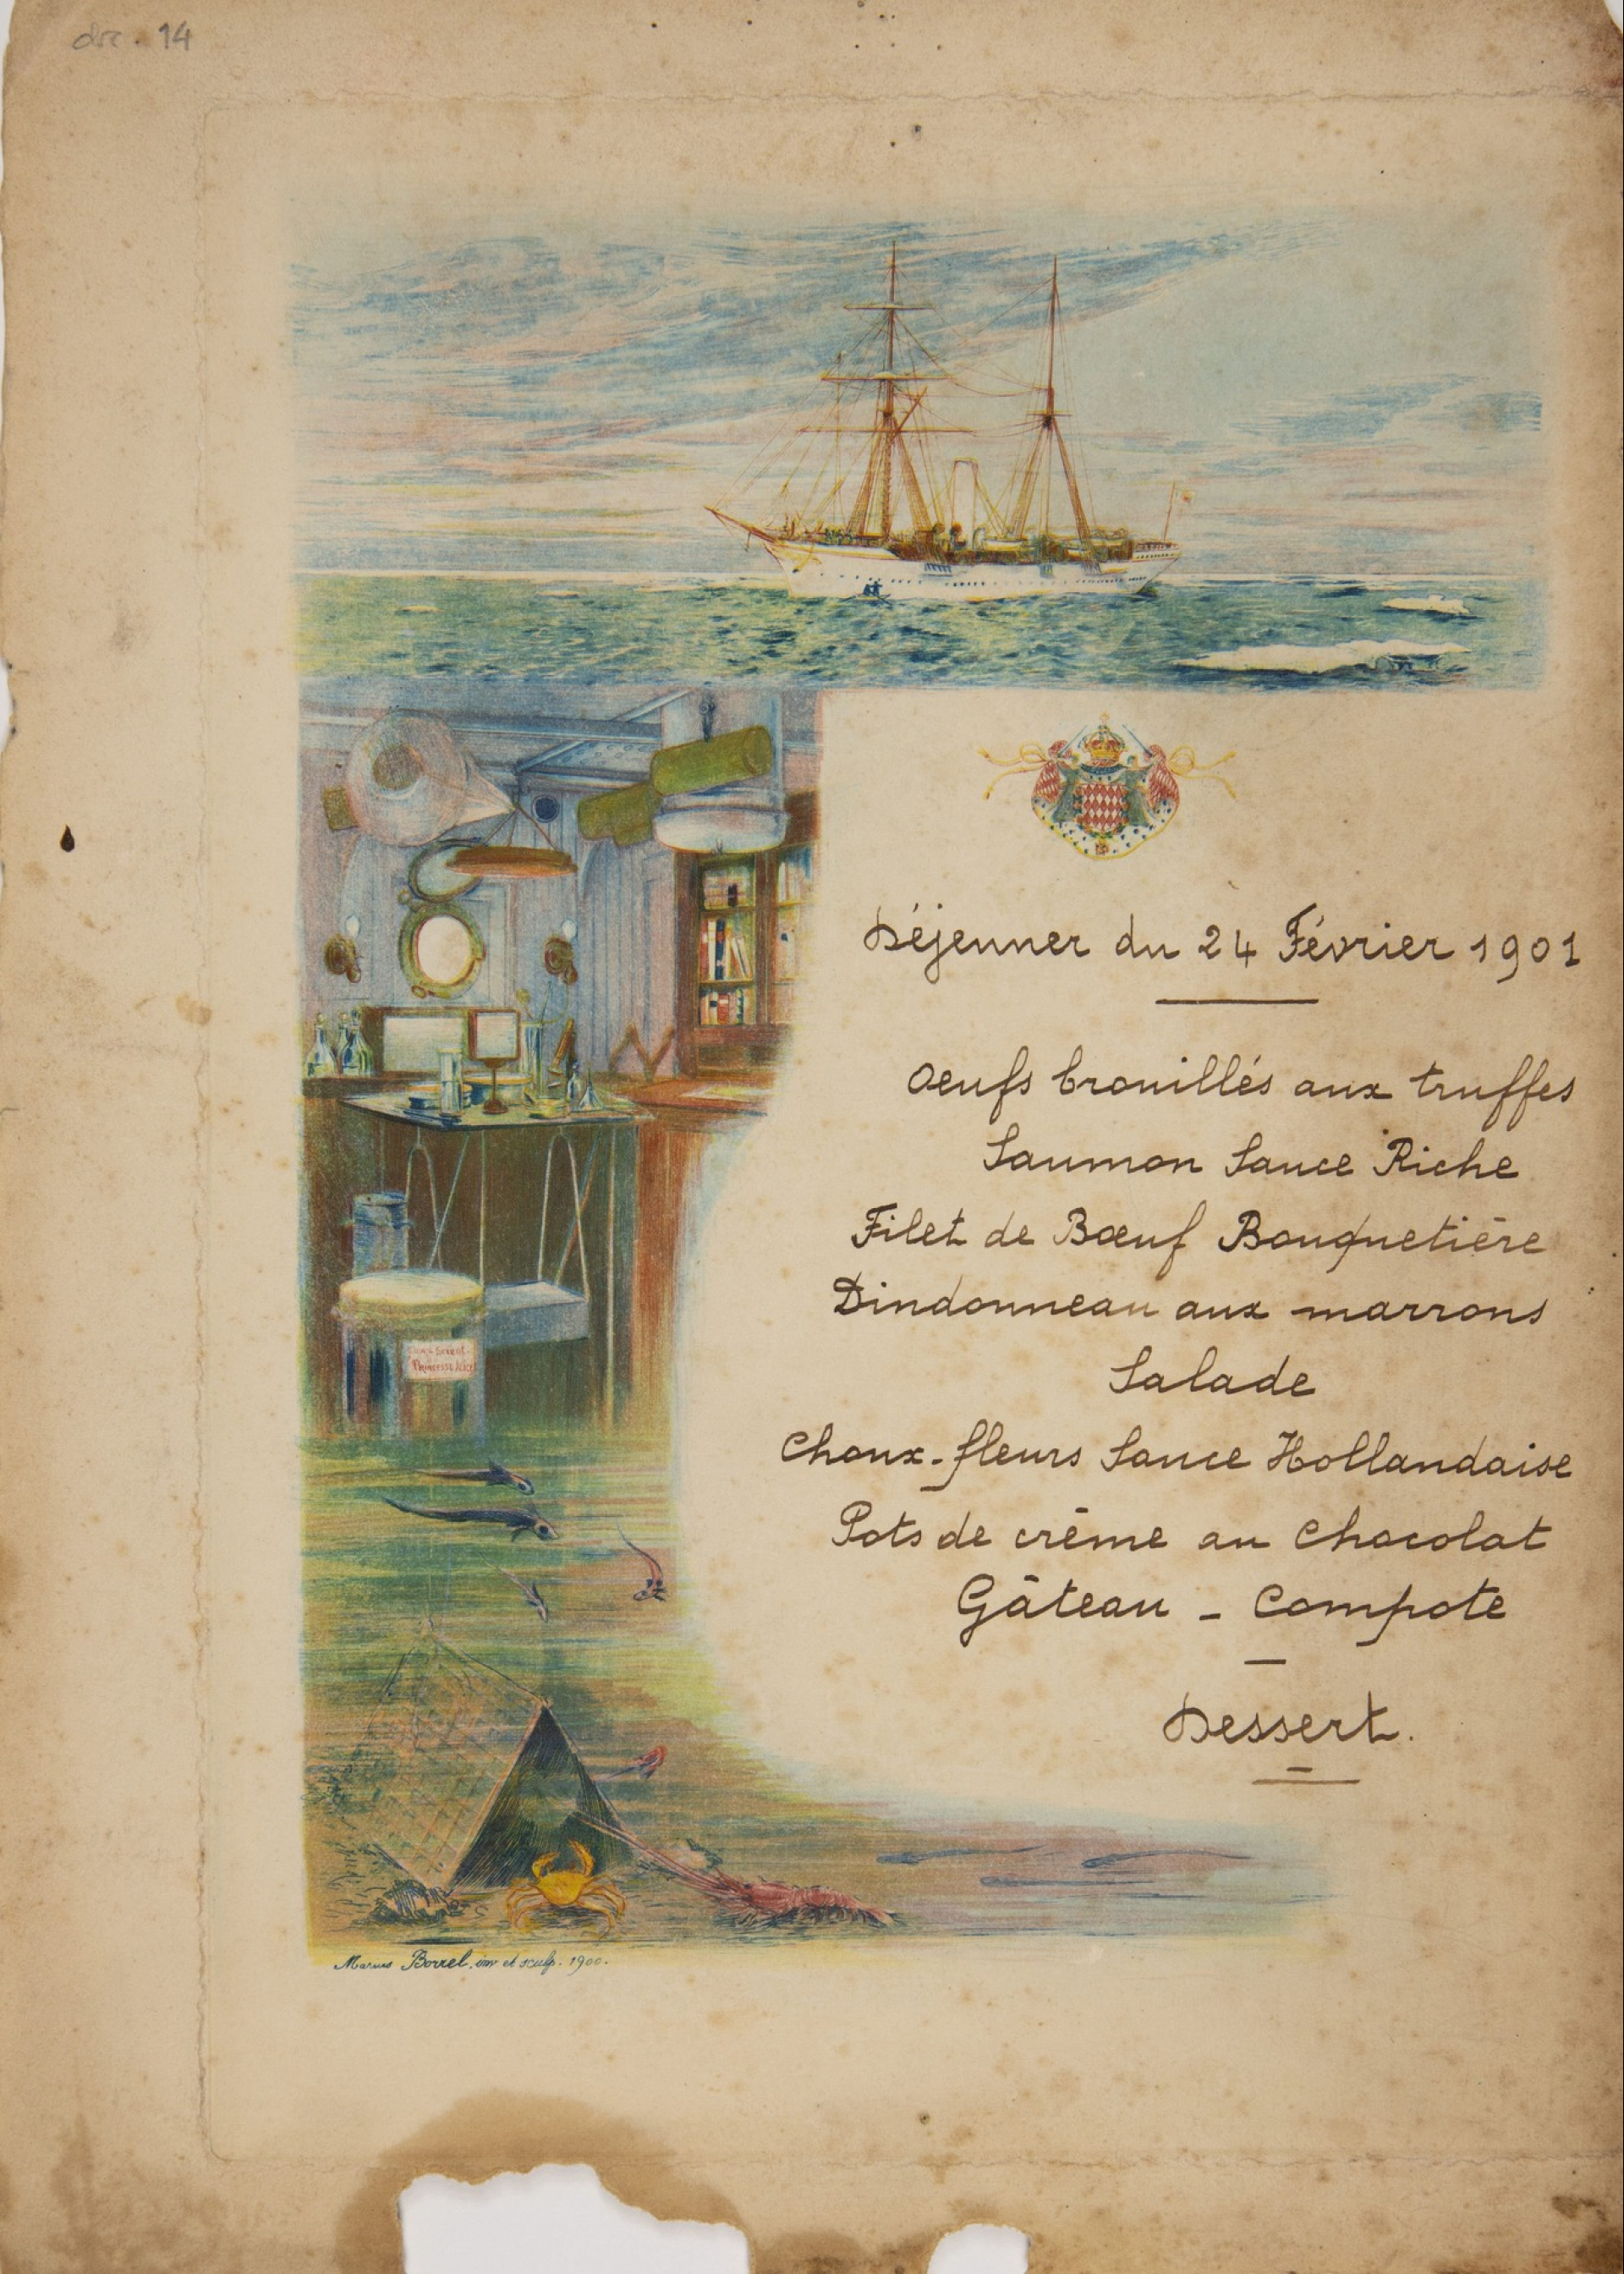 doc. 14
Déjeuner du 24 Février 1901
Oeufs brouillés aux truffes
Saumon Sauce Riche
Filet de Bœuf Bouquetière
Dindonneau aux marrons
Salade
Choux-fleurs Sauce Hollandaise
Pots de crème au Chocolat
Gâteau - Compote
Dessert.
Princesse Alice
Marius Borrel. inv et sculp. 1900.